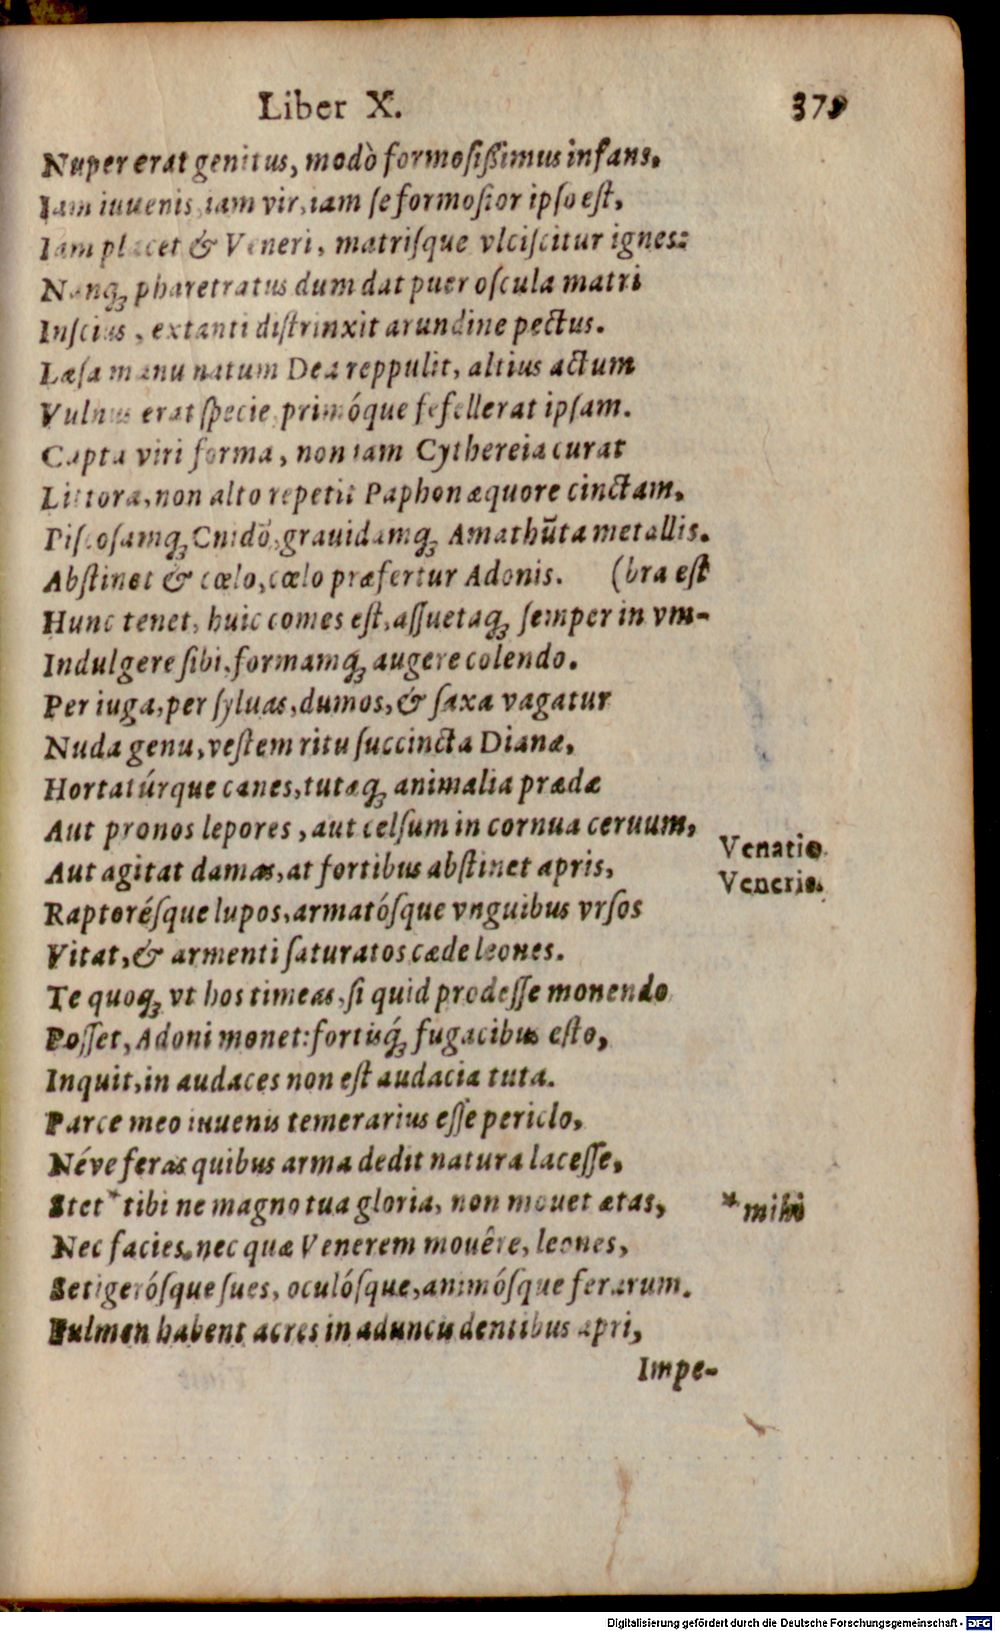 Liber X. 379
Nuper erat genitus, modò formosißimus infans,
Iam iuuenis, iam vir, iam se formosior ipso est,
Iam placet & Veneri, matrisque vlciscitur ignes:
Nanq; pharetratus dum dat puer oscula matri
Inscius, extanti distrinxit arundine pectus.
Læsa manu natum Dea reppulit, altius actum
Vulnus erat specie, primóque fefellerat ipsam.
Capta viri forma, non iam Cythereia curat
Littora, non alto repetit Paphon æquore cinctam,
Piscosamq; Cnidō, grauidamq; Amathūta metallis.
Abstinet & cœlo, cœlo præfertur Adonis. (bra est
Hunc tenet, huic comes est, assuetaq; semper in vm-
Indulgere sibi, formamq; augere colendo.
Per iuga, per syluas, dumos, & saxa vagatur
Nuda genu, vestem ritu succincta Dianæ,
Hortatúrque canes, tutæq; animalia prædæ
Aut pronos lepores, aut celsum in cornua ceruum,
Venatio
Aut agitat damas, at fortibus abstinet apris,
Veneris.
Raptorésque lupos, armatósque vnguibus vrsos
Vitat, & armenti saturatos cæde leones.
Te quoq; vt hos timeas, si quid prodesse monendo
Posset, Adoni monet: fortisq́; fugacibus esto,
Inquit, in audaces non est audacia tuta.
Parce meo iuuenis temerarius esse periclo,
Néve feras quibus arma dedit natura lacesse,
Stet * tibi ne magno tua gloria, non mouet ætas,
* mihi
Nec facies, nec quæ Venerem mouêre, leones,
Setigerósque sues, oculósque, animósque ferarum.
Fulmen habent acres in aduncis dentibus apri,
Impe-
Digitalisierung gefördert durch die Deutsche Forschungsgemeinschaft - DFG